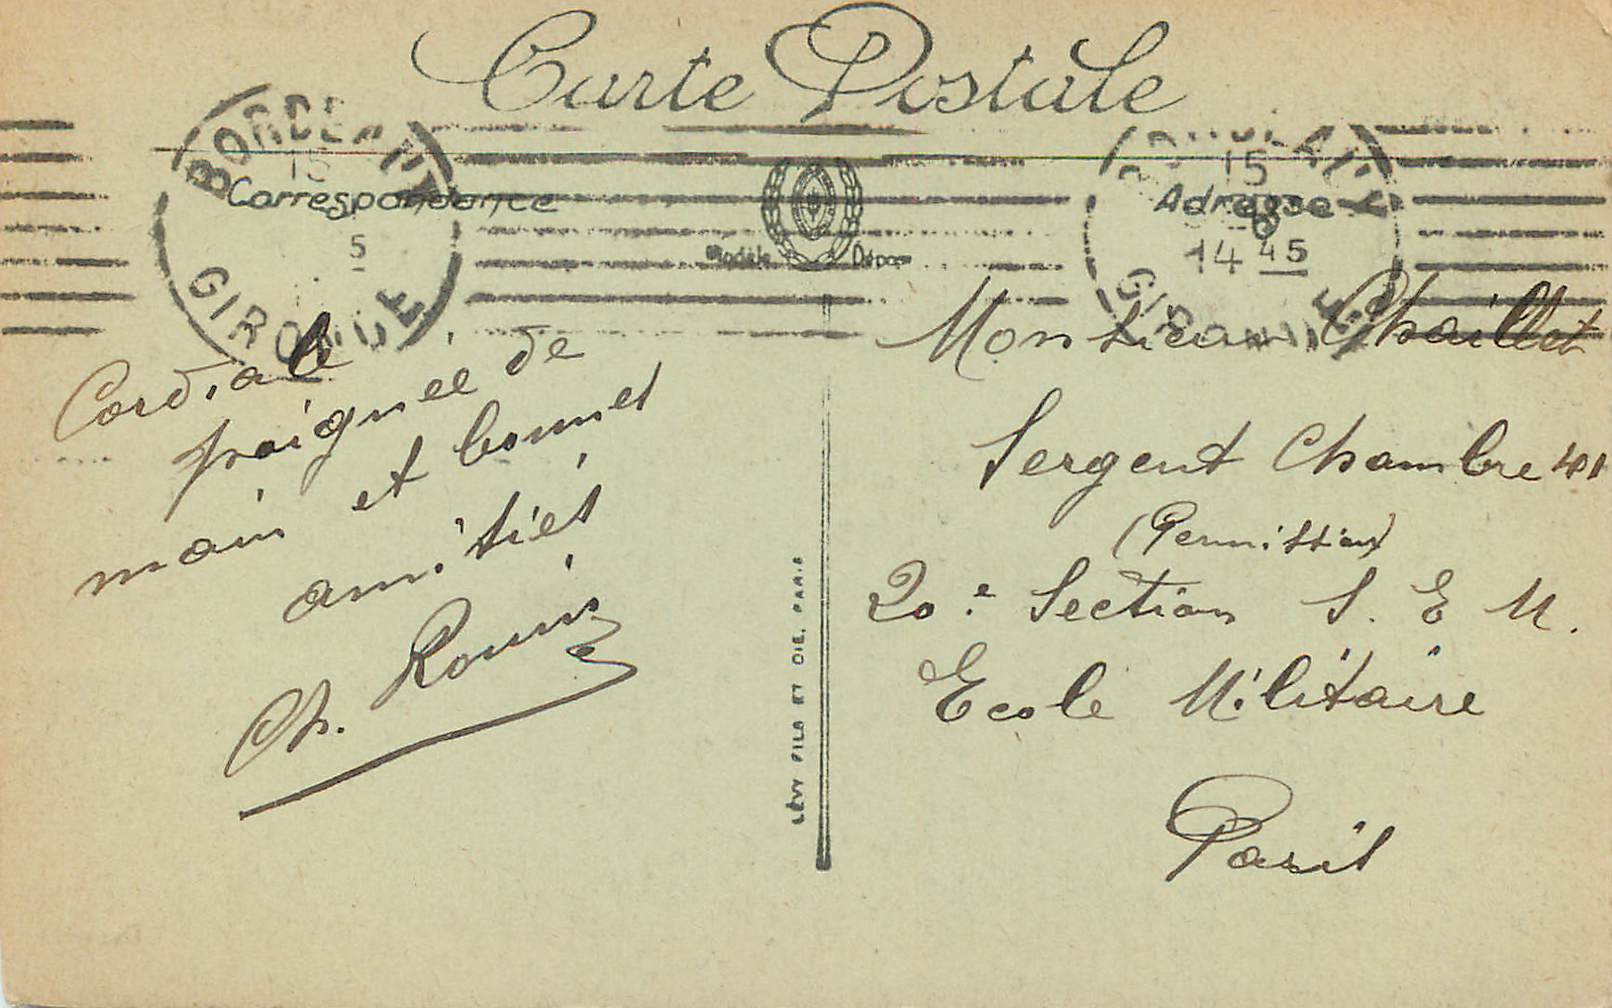 Carte Postale
BORDEAUX
15
5
GIRONDE
Correspondance
Modèle Déposé
BORDEAUX
15
14 45
GIRONDE
Adresse
Cordiale
poignée de
main et bonnes
amitiés
Ch.
LÉVY FILS ET CIE, PARIS
Monsieur Chaillet
Sergent Chambre 41
(Permission)
20e Section S. E M.
Ecole Militaire
Paris